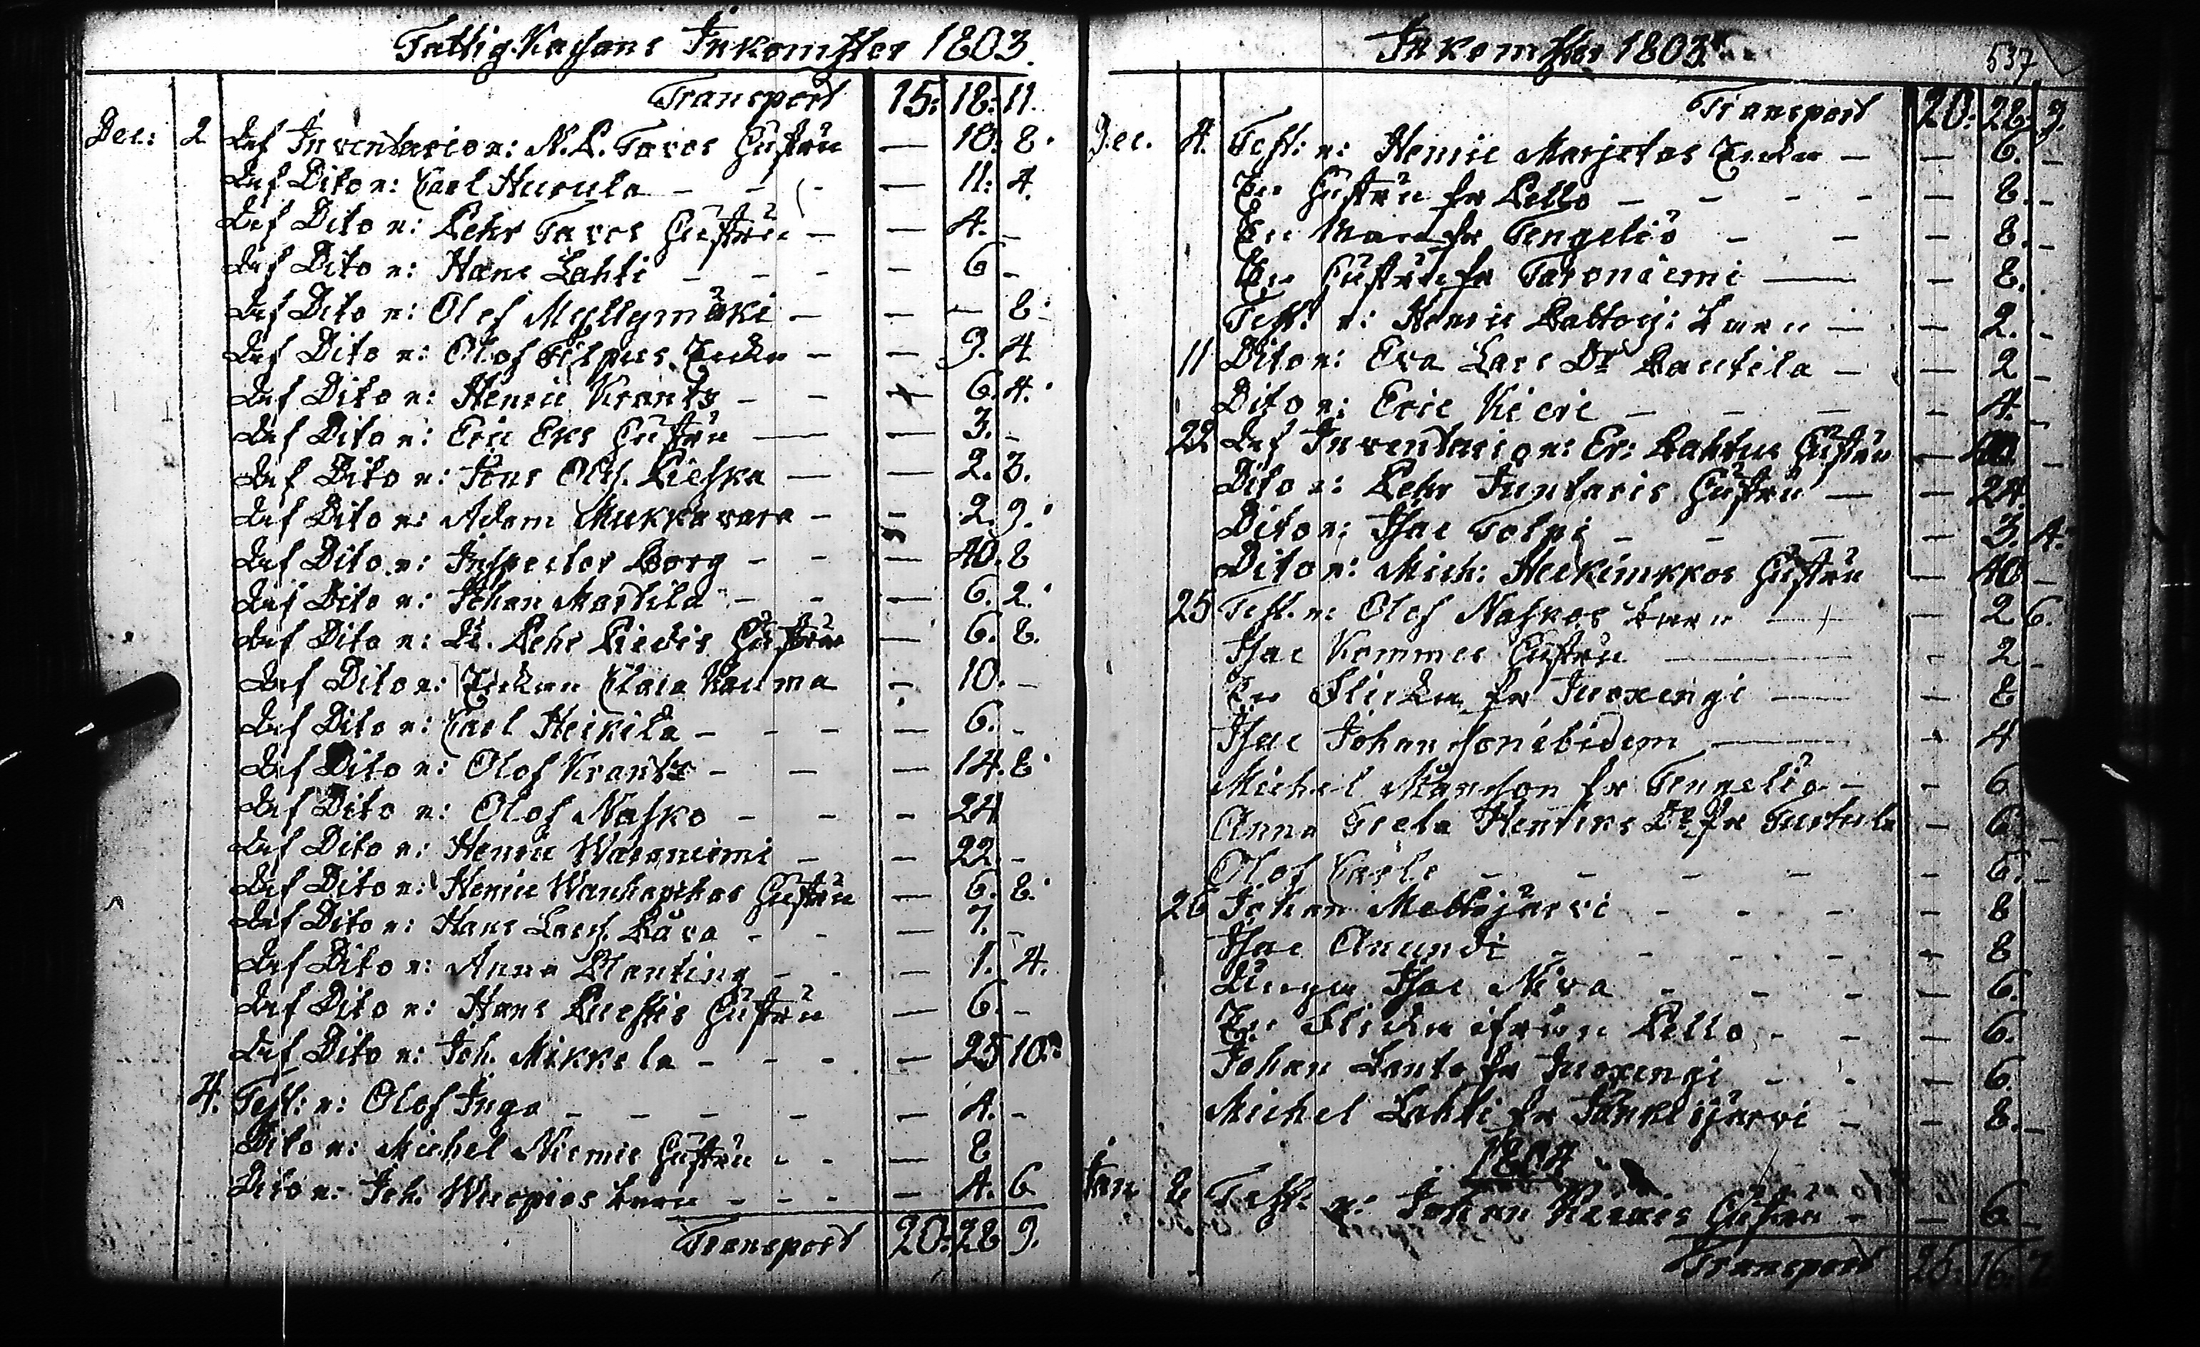 Fattig Kassans Inkomster 1803.
Transport 15: 18: 11.
Dec: 2 Af Inventario e: N. P. Tavos Hustru — 10. 8.
Af Dito e: Carl Huru la — 11: 4.
Af Dito e: Pehr Tavos Hustru — — 4. -
Af Dito e: Hans Lahti — 6 -
Af Dito e: Olof Myllymäki — — — 8.
Af Dito e: Olof Filpus Enka — — 9. 4.
Af Dito e: Henric Krants — 6. 4.
Af Dito e: Eric Ers Hustru — — 3. -
Af Dito e: Jöns Olss. Pieska — — 2. 3.
Af Dito e: Adam Mukkavara — - 2. 9.
Af Dito e: Inspector Borg — 40. 8
Af Dito e: Johan Martila — 6. 2.
Af Dito e: Pehr Hustru — 6. 8.
Af Dito e: Enkan Clara Rauma - 10. -
Af Dito e: Carl Heikila - - - — 6. -
Af Dito e: Olof Krants - — — 14. 8.
Af Dito e: Olof Nasko - - - 24
Af Dito e: Henric Waraniemi — - 22. -
Af Dito e: Henric Hustru — 6. 8.
Af Dito e: Hans Larss. Båra - - — 7. -
Af Dito e: Anna Planting - - — 1. 4.
Af Dito e: Hans Hustru — 6. -
Af Dito e: Joh. Mikkela - - - — 25 10.
4. Test: e: Olof Inga - - - - — 4. -
Dito e: Michel Niemis Hustru - - — 8
Dito e: Joh. Wuopios barn - - - - 4. 6
Transport 20: 28 9.
Inkomster 1803.
537
Transport 20: 28. 9.
Dec. 4. Test: e: Henric Marjetas Enka — — 6. -
En Hustru fr Pello - - - - — 8. -
En Man fr Tengeliö - — - 8. -
En Hustru fr Toronäemi — - 8.
Test: e: Henric barn — - 2. -
11 Dito e: Eva Lars Dr Pautila - — 2 -
Dito e: Eric Kieri - - - - 4. -
22 Af Inventario e: Er: Hustru —
Dito e: Pehr Juntaris Hustru — - 24.
Dito e: Isac Tolpi - - - - 3. 4.
Dito e: Mich: Heikinkkos Hustru - 40 -
25 Test. e: Olof Naskos barn — — 2 6.
Isac Kommes Hustru — - 2 -
En Flicka fr Juoxengi — - 8
Isac Johan — - 4
Michel Månsson fr Tengeliö - - 6
Anna Greta Henriks Dr fr Turtula - 6. -
Olof - - - - - 6. -
26 Johan Mettäjärvi - - - - 8
Isac Anundi - - - - — 8
Isac Niva - - - - 6.
En Flicka ifrån Pello - - - 6.
Johan Lanto fr Juoxengi - - - 6
Michel Lahti fr — - 8. -
1804
Jan 8 Test: e: Johan Hustru - — 6 -
Transport 26. 16. 2